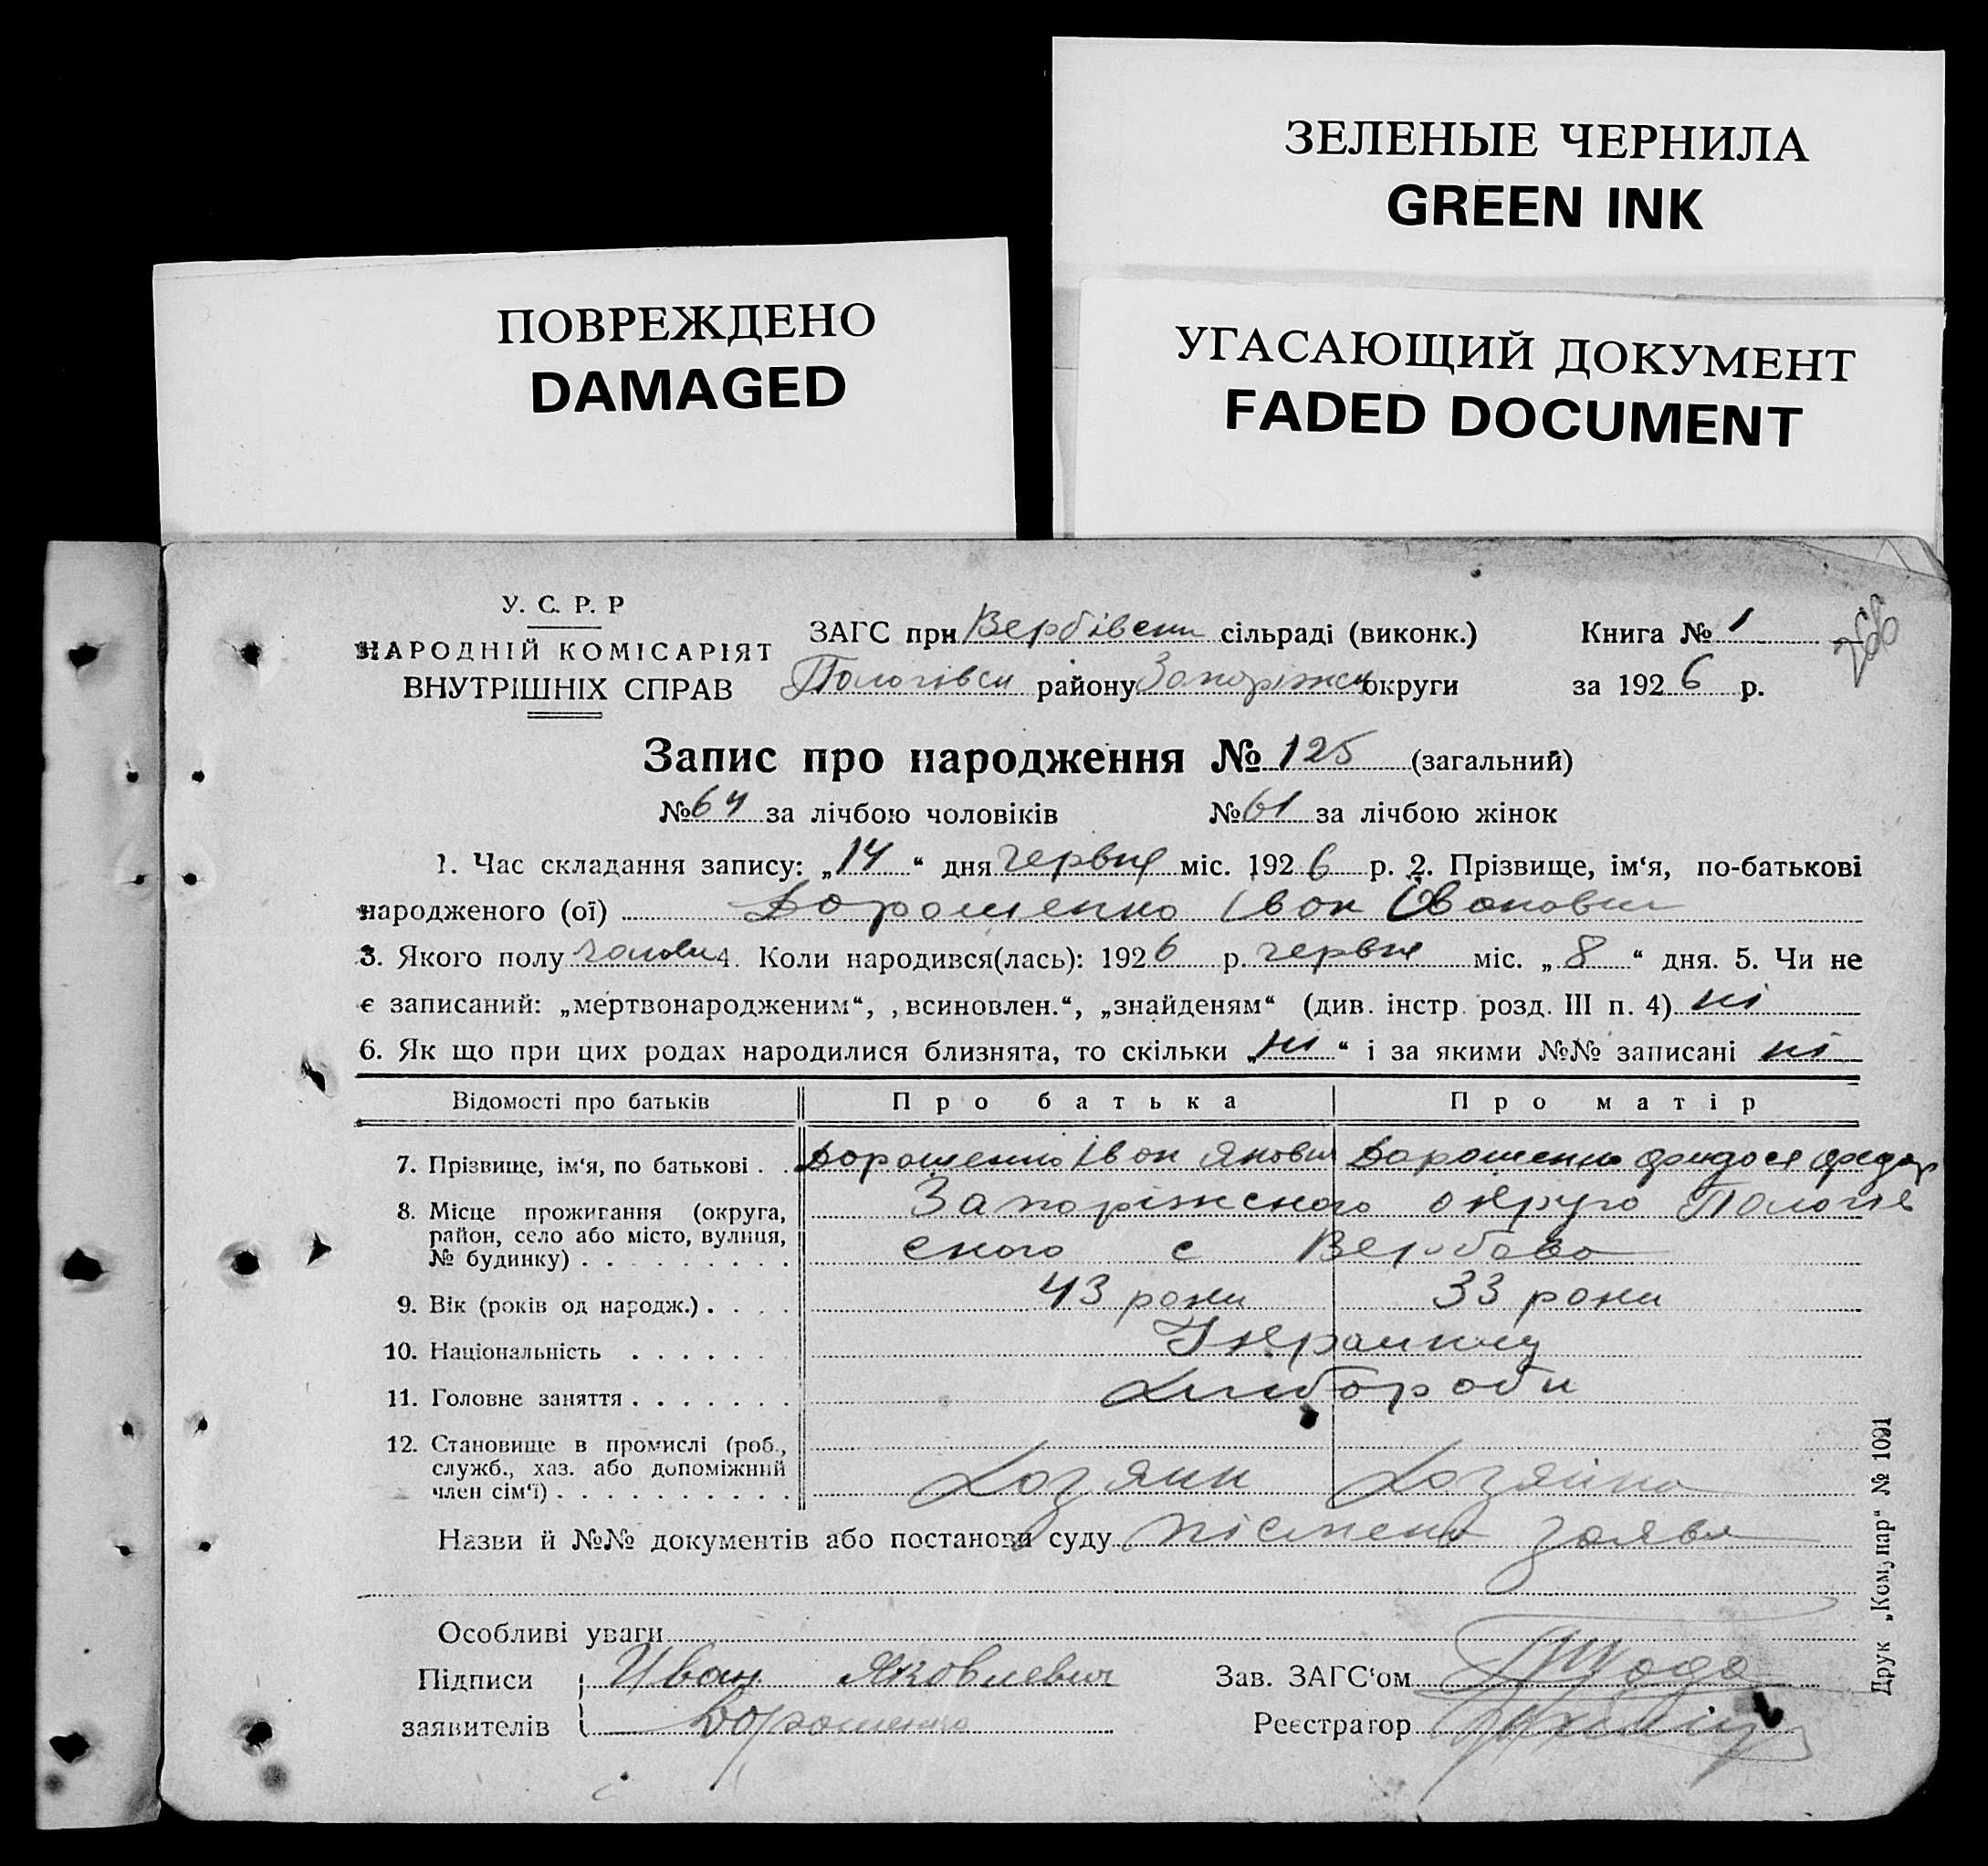 ЗЕЛЕНЫЕ ЧЕРНИЛА
GREEN INK
ПОВРЕЖДЕНО
DAMAGED
УГАСАЮЩИЙ ДОКУМЕНТ
FADED DOCUMENT
У. С. Р. Р
НАРОДНІЙ КОМІСАРІЯТ
ВНУТРІШНІХ СПРАВ
ЗАГС при Вербівськ сільраді (виконк.) Книга № 1 266
Пологівськ району Запоріжськ округи за 1926 р.
Запис про народження № 125 (загальний)
№ 64 за лічбою чоловіків № 61 за лічбою жінок
1. Час складання запису: „14“ дня червня міс. 1926 р. 2. Прізвище, ім‘я, по-батькові
народженого (ої) Дорошенко Іван Іванович
3. Якого полу чоловіч 4. Коли народився(лась): 1926 р. червня міс. „8“ дня. 5. Чи не
є записаний: „мертвонародженим“, „всиновлен.“, „знайденям“ (див. інстр. розд. III п. 4) ні
6. Як що при цих родах народилися близнята, то скільки „ні“ і за якими №№ записані ні
Відомості про батьків Про батька Про матір
7. Прізвище, ім‘я, по батькові . . Дорошенко Іван Якович Дорошенко Федор
8. Місце прожигання (округа, район, село або місто, вулиця, № будинку) . . . . . . . . . Запоріжського округа Пологів
ського с Вербова
9. Вік (років од народж.) . . . . 43 роки 33 роки
10. Національність . . . . . . Україниц
11. Головне заняття . . . . . . . Хлібороби
12. Становище в промислі (роб., служб., хаз. або допоміжний член сім‘ї) . . . . . . . . . . Хозяин Хозяйка
Назви й №№ документів або постанови суду пісмена заява
Особливі уваги
Підписи Иван Яковлевич Зав. ЗАГС‘ом
заявителів Дорошенко Реєстратор
Друк „Комунар“ № 1091